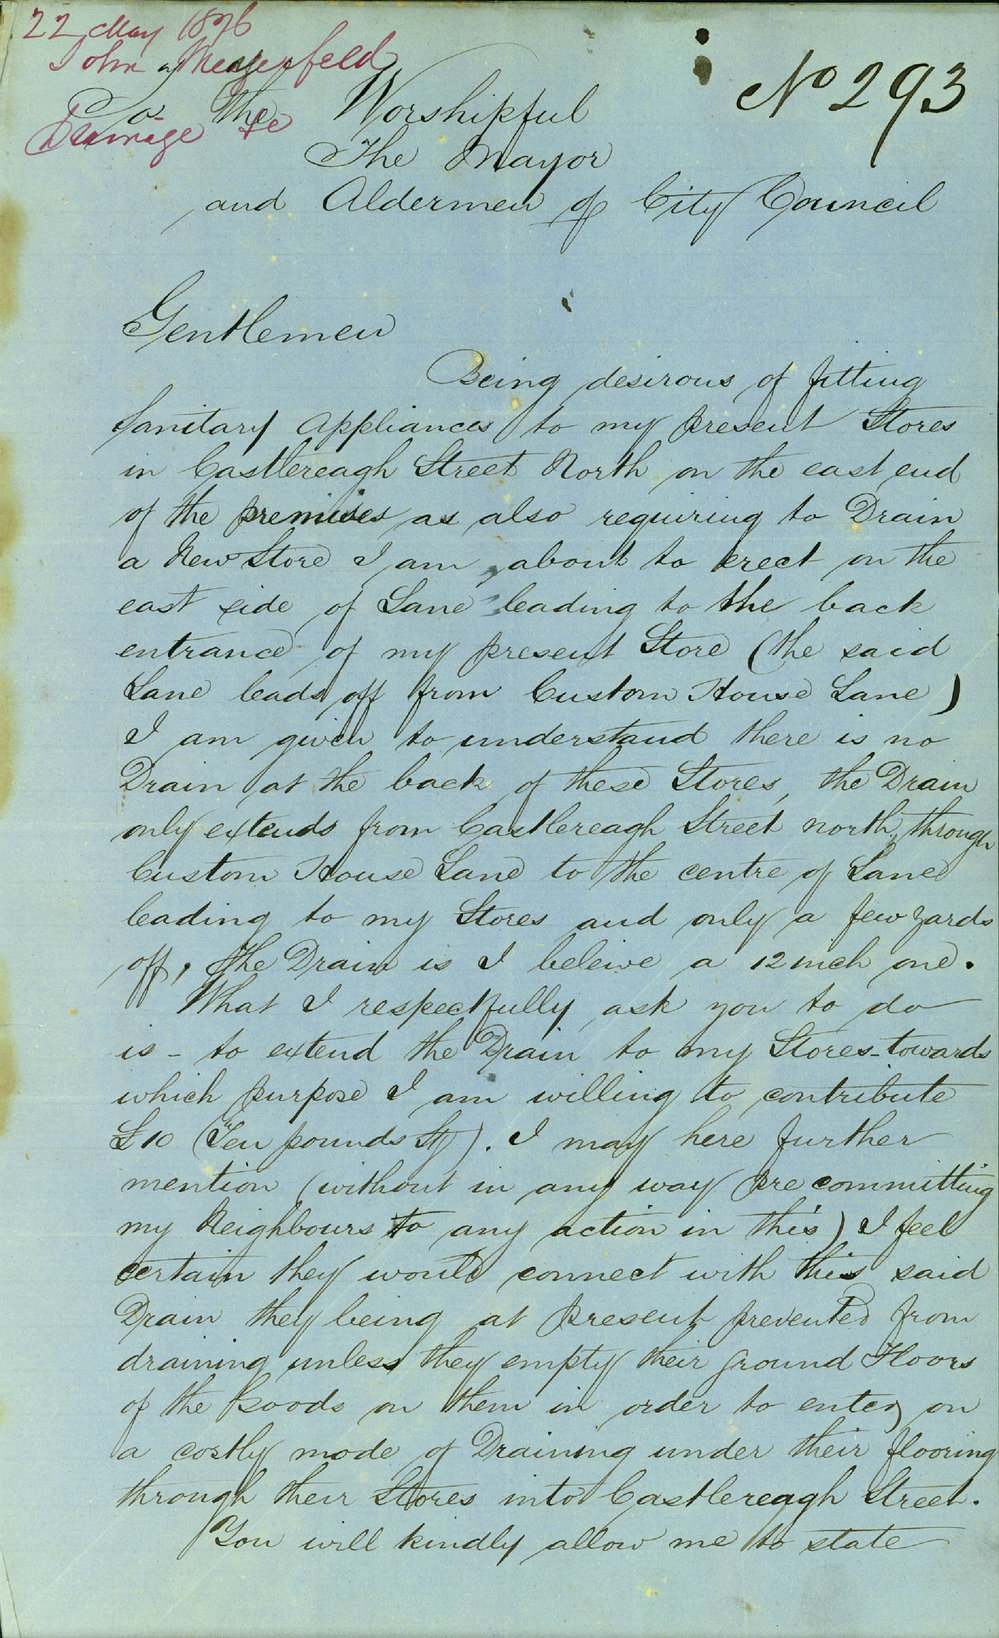 22 May 1876
John Meyerfeld
Drainage re
No 293
To the Worshipful
The Mayor
and Aldermen of City Council
Gentlemen
Being desirous of fitting
Sanitary Appliances to my present Stores
in Castlereagh Street North on the east end
of the premises as also requiring to Drain
a New Store I am about to erect on the
east side of Lane leading to the back
entrance of my present Store (the said
Lane leads off from Custom House Lane)
I am given to understand there is no
Drain at the back of these Stores, the Drain
only extends from Castlereagh Street north, through
Custom House Lane to the centre of Lane
leading to my Stores and only a few yards
off, the Drain is I beleive a 12 inch one.
What I respectfully ask you to do
is - to extend the Drain to my Stores - towards
which purpose I am willing to contribute
£10 (Ten pounds Stg). I may here further
mention (without in any way pre committing
my Neighbours to any action in this) I feel
certain they would connect with this said
Drain they being at present prevented from
draining unless they empty their ground Floors
of the Goods on them in order to enter on
a costly mode of Draining under their flooring
through their Stores into Castlereagh Street.
You will kindly allow me to state